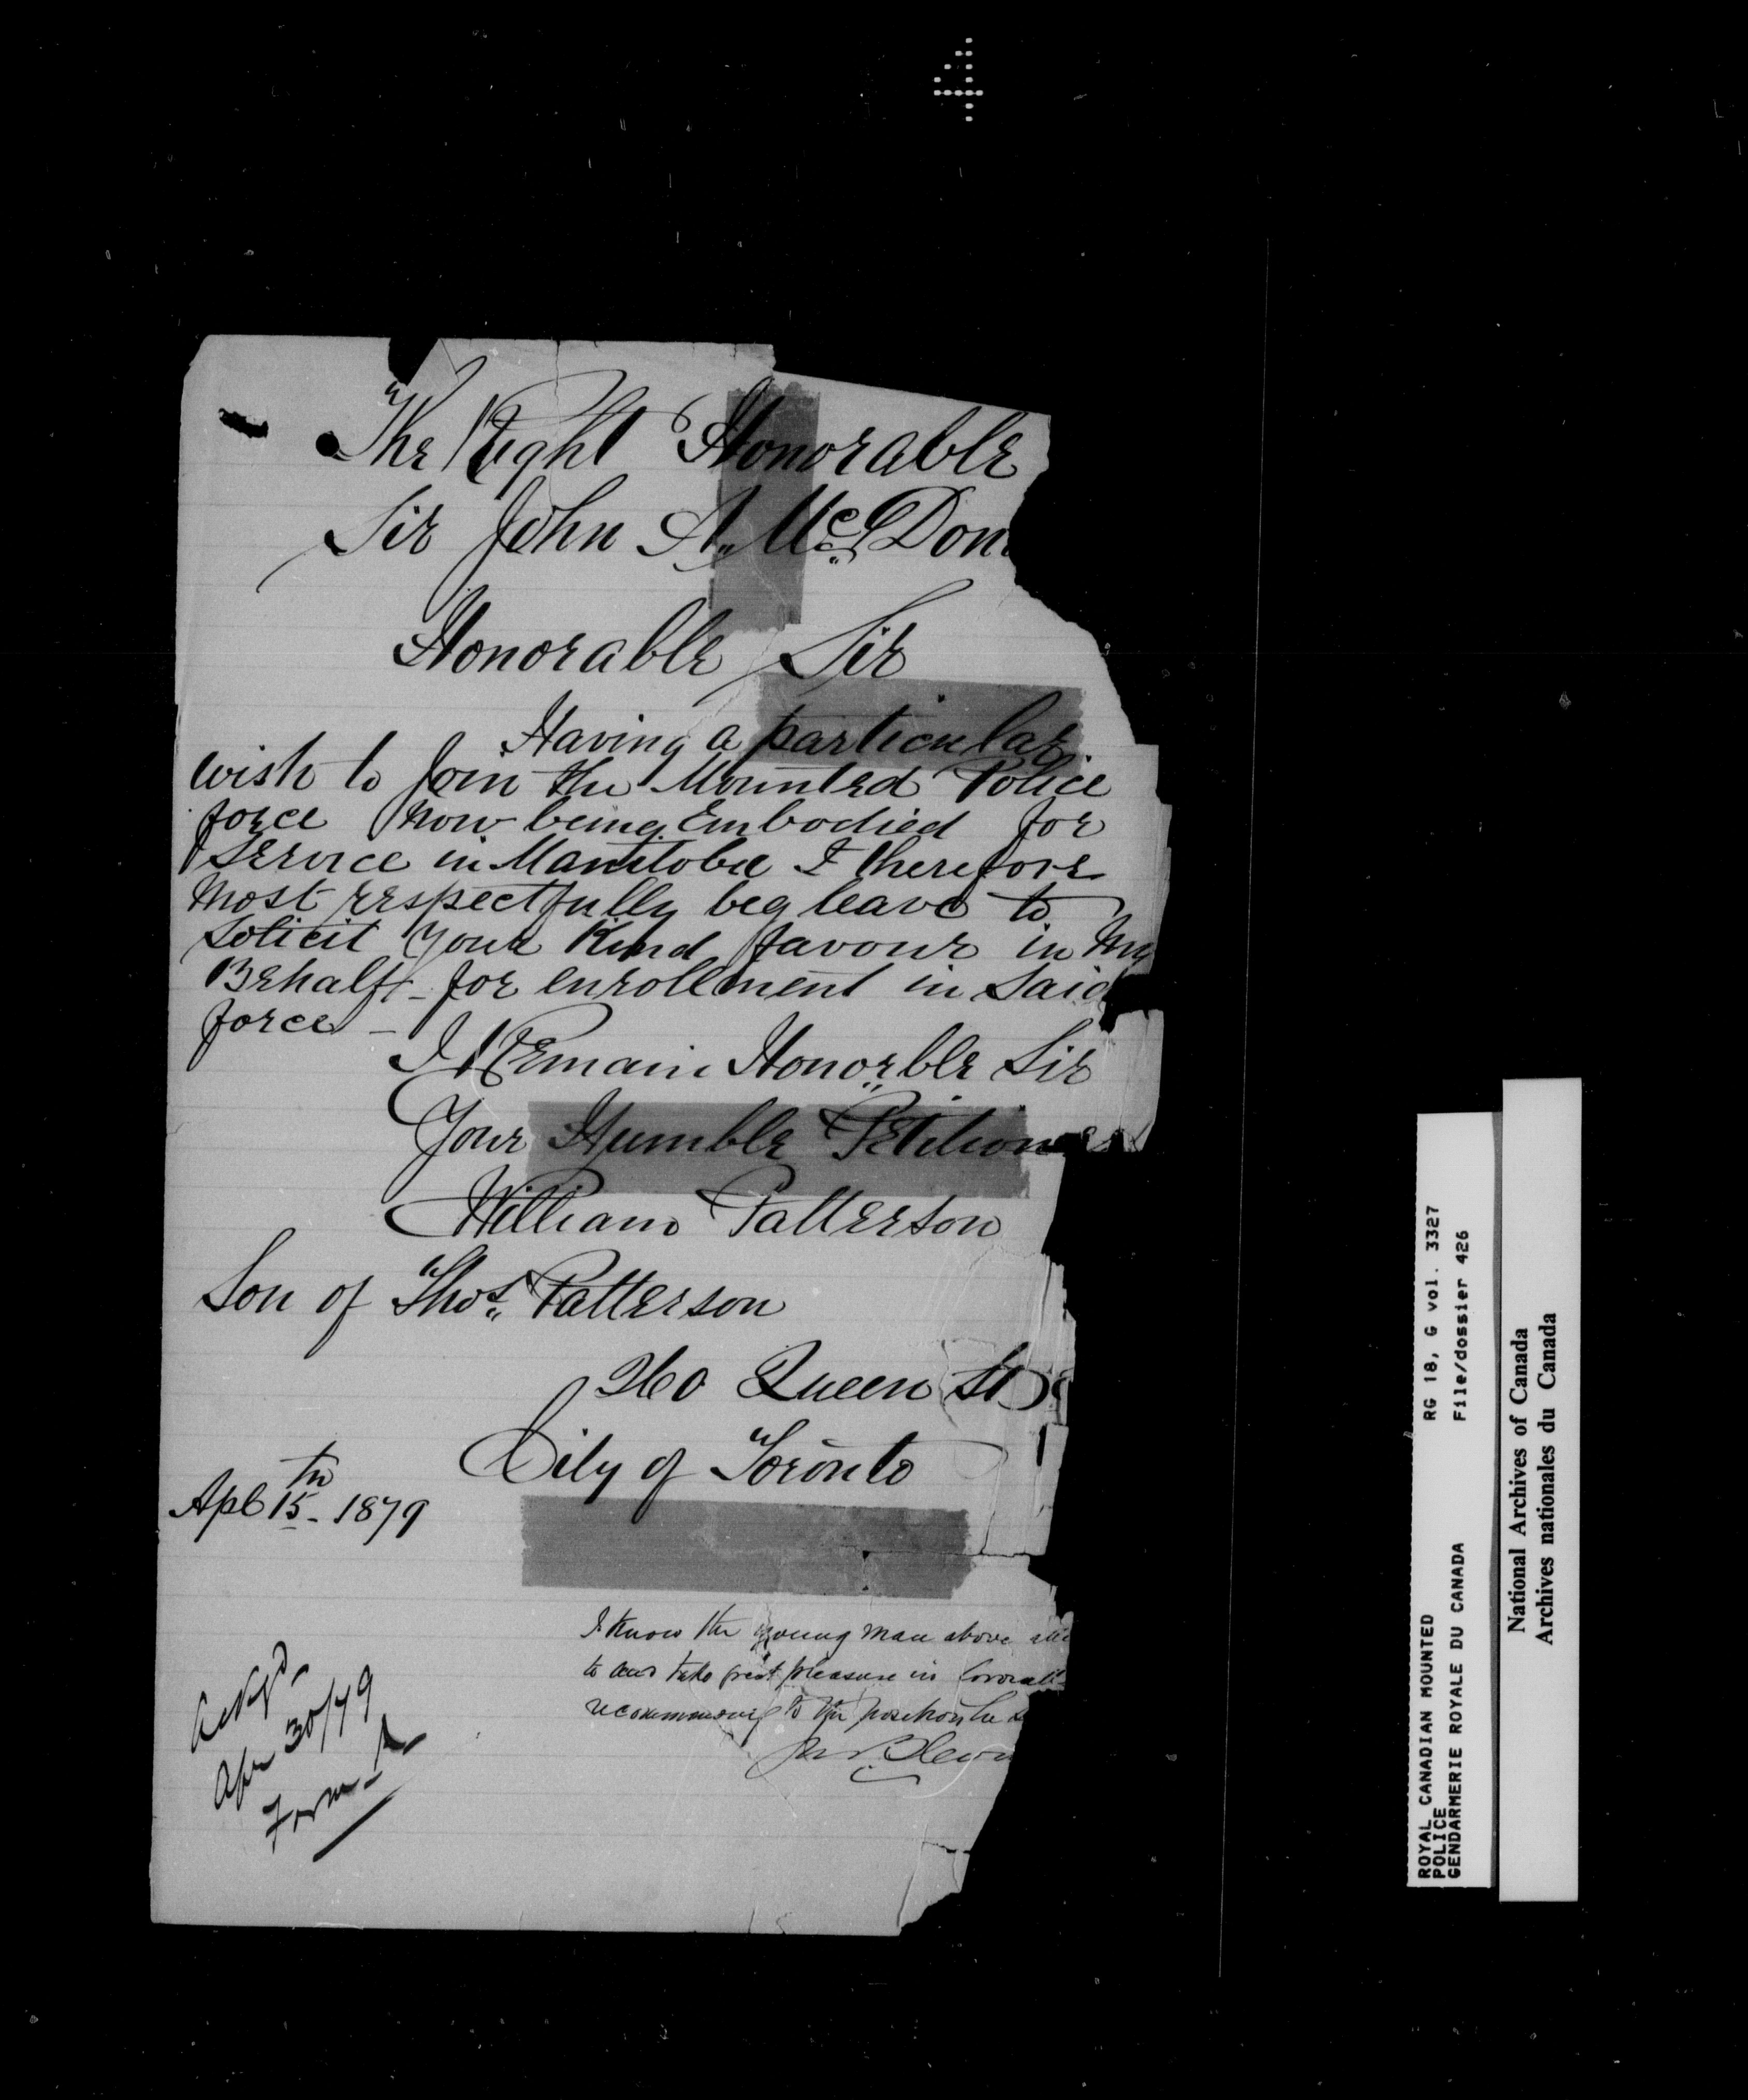 4
The Right Honorable
Sir John A. McDon
Honorable Sir
Having a particular
wish to Join the Mounted Police
force now being Embodied for
Service in Manitoba I therefore
Most respectfully beg leave to
Solicit your Kind favour in My
Behalf - for enrollment in Said
force -
I Remain Honorble Sir
Your Humble Petitioner
William Patterson
Son of Thos. Patterson
260 Queen St
City of Toronto
Apl 15th - 1879
I know the young man above
to and take great pleasure in
recommending to the position he
Ackd
Apr 30/79
Form A
ROYAL CANADIAN MOUNTED
POLICE
GENDARMERIE ROYALE DU CANADA
RG 18, G vol. 3327
File/dossier 426
National Archives of Canada
Archives nationales du Canada